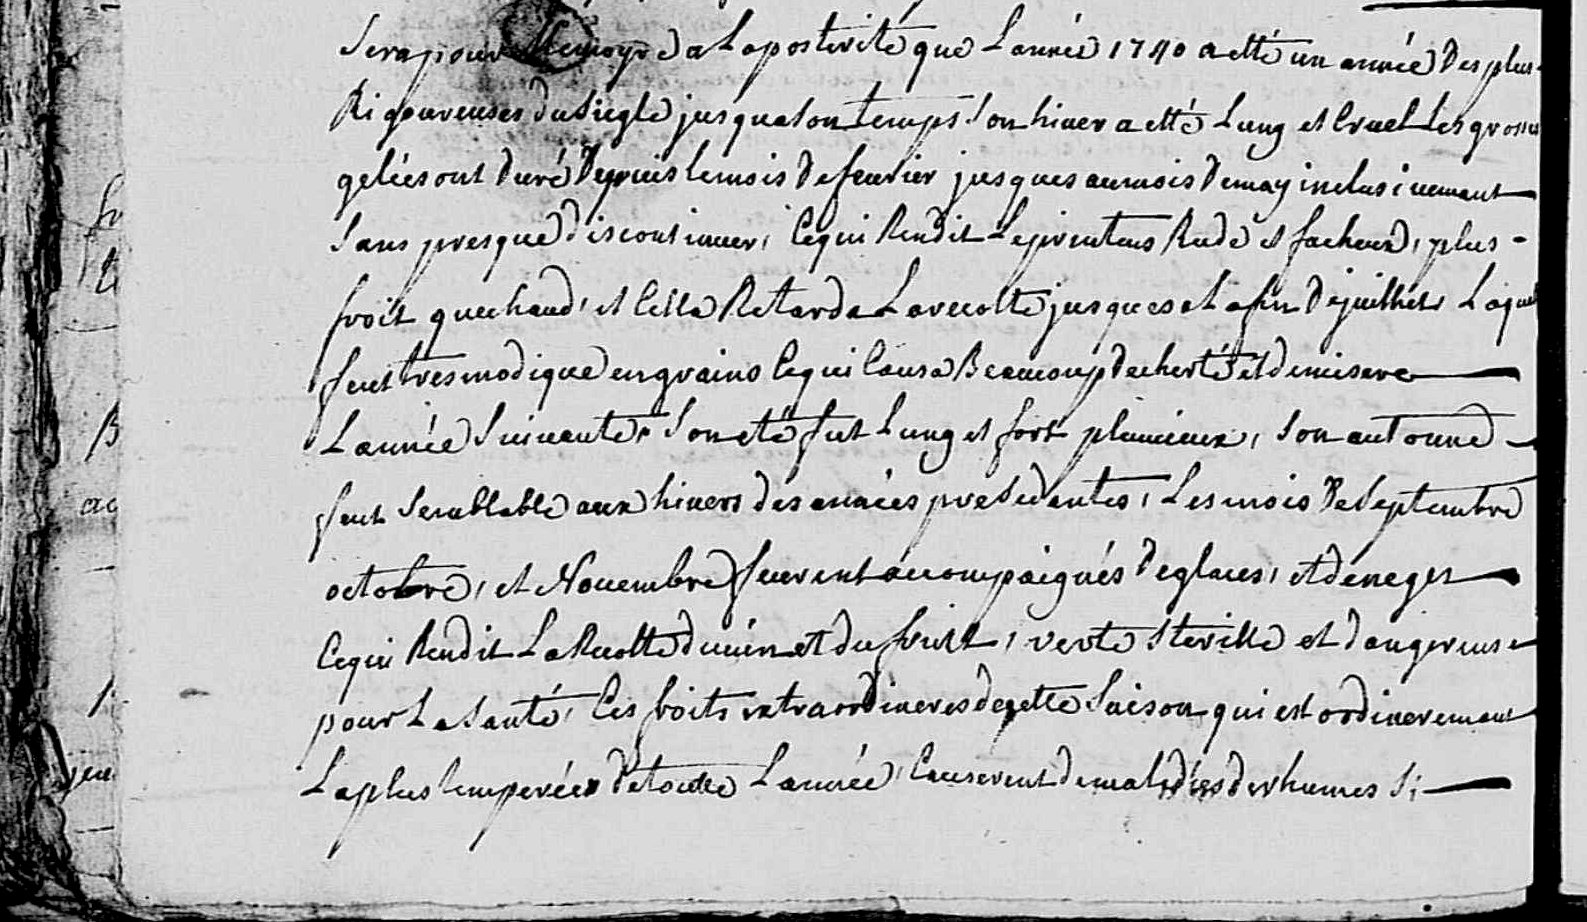 Sera pour Memoyre a La posterité que L'année 1740 a etté un année Des plus
Rigoureuses du Siegle jusqua son temps Son hiver a etté Lung et Cruel Les grosses
gelées ont Duré Depuis le mois De feurier jusques au mois De may inclusiuemant
Sans presque discontinuer, Ce qui Rendit Le printems Rude et facheux, plus
froit que chaud, et Cella Retarda La recolte jusques a La fin De juilhet, Laquel
feut tres modique en grains Ce qui Causa Beaucoup de cherté et de misere
L'année Suivante, Son eté fut Lung et fort pluuieux, Son autonne
feut Semblable aux hivers des années presedantes, Les mois De Septembre
octobre, et Nouembre feurent accompaignés De glaces, et de neges
Ce qui Rendit La Recolte du uin et du fruit, verte sterille et dangereuse
pour La Santé, Ces froits extraordineres de cette Saison qui est ordinerement
La plus temperée De toute L'année, Causerent de maladies de rhumes Si